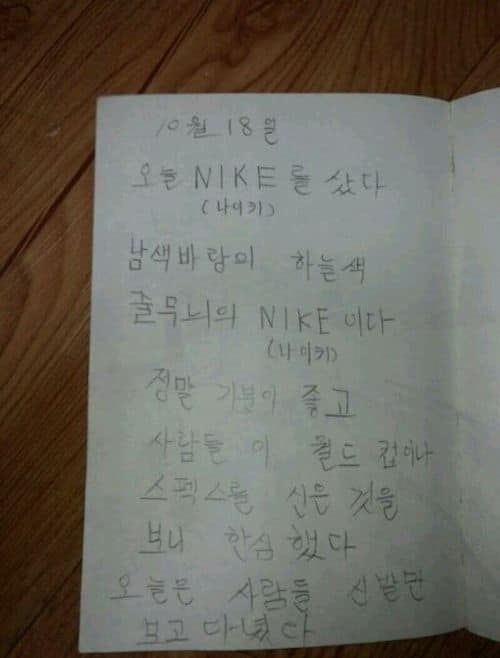 10월 18일
오늘 NIKE를 샀다
(나이키)
남색바탕의 하늘색
줄무늬의 NIKE이다
(나이키)
정말 기분이 좋고
사람들이 월드컵이나
스펙스를 신은 것을
보니 한심했다
오늘은 사람들 신발만
보고 다녔다